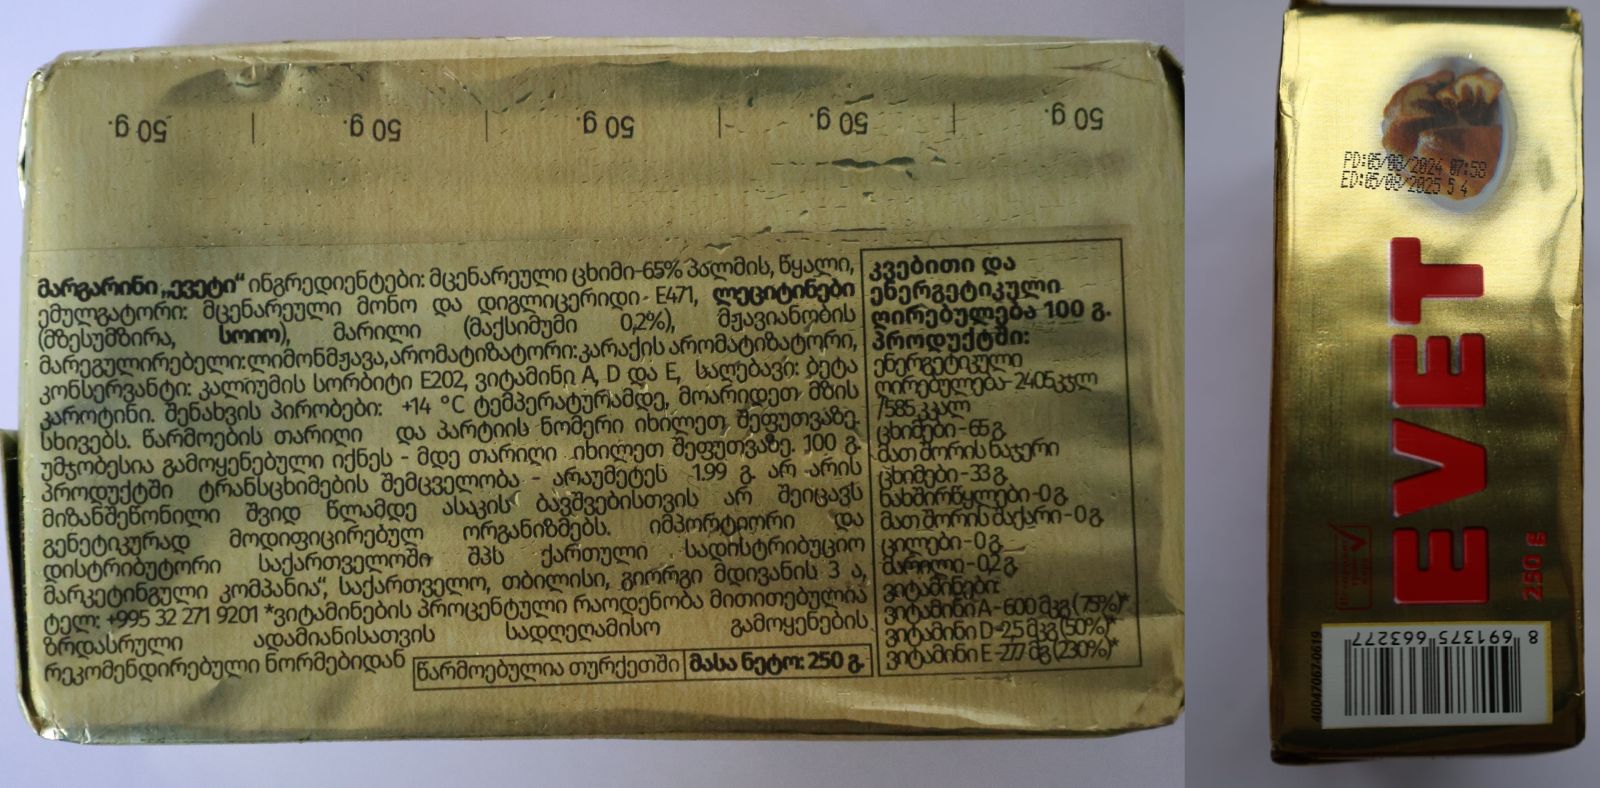 50 g. 50 g. 50 g. 50 g. 50 g.
მარგარინი „ევეტი“ ინგრედიენტები: მცენარეული ცხიმი-65% პალმის, წყალი,
ემულგატორი: მცენარეული მონო და დიგლიცერიდი- E471, ლეციტინები
(მზესუმზირა, სოიო), მარილი (მაქსიმუმი 0,2%), მჟავიანობის
მარეგულირებელი:ლიმონმჟავა,არომატიზატორი:კარაქის არომატიზატორი,
კონსერვანტი: კალიუმის სორბიტი E202, ვიტამინი A, D და E, საღებავი: ბეტა
კაროტინი. შენახვის პირობები: +14 °C ტემპერატურამდე, მოარიდეთ მზის
სხივებს. წარმოების თარიღი და პარტიის ნომერი იხილეთ შეფუთვაზე.
უმჯობესია გამოყენებული იქნეს - მდე თარიღი იხილეთ შეფუთვაზე. 100 გ.
პროდუქტში ტრანსცხიმების შემცველობა - არაუმეტეს 1.99 გ. არ არის
მიზანშეწონილი შვიდ წლამდე ასაკის ბავშვებისთვის არ შეიცავს
გენეტიკურად მოდიფიცირებულ ორგანიზმებს. იმპორტიორი და
დისტრიბუტორი საქართველოში შპს ქართული სადისტრიბუციო
მარკეტინგული კომპანია“, საქართველო, თბილისი, გიორგი მდივანის 3 ა,
ტელ: +995 32 271 9201 *ვიტამინების პროცენტული რაოდენობა მითითებულია
ზრდასრული ადამიანისათვის სადღეღამისო გამოყენების
რეკომენდირებული ნორმებიდან
წარმოებულია თურქეთში მასა ნეტო: 250 გ.
კვებითი და
ენერგეტიკული
ღირებულება 100 გ.
პროდუქტში:
ენერგეტიკული
ღირებულება- 2405კჯლ
/585 კკალ
ცხიმები -65 გ.
მათ შორის ნაჯერი
ცხიმები -33 გ.
ნახშირწყლები -0 გ.
მათ შორის შაქარი -0 გ.
ცილები -0 გ.
მარილი -0,2 გ.
ვიტამინები:
ვიტამინი A -600 მკგ (75%)*
ვიტამინი D -2.5 მკგ (50%)*
ვიტამინი E -27.7 მგ (230%)*
PD:05/08/2024 07:58
ED:05/08/2025 5 4
EVET
250 g
40047067-0619
8 691375 663277